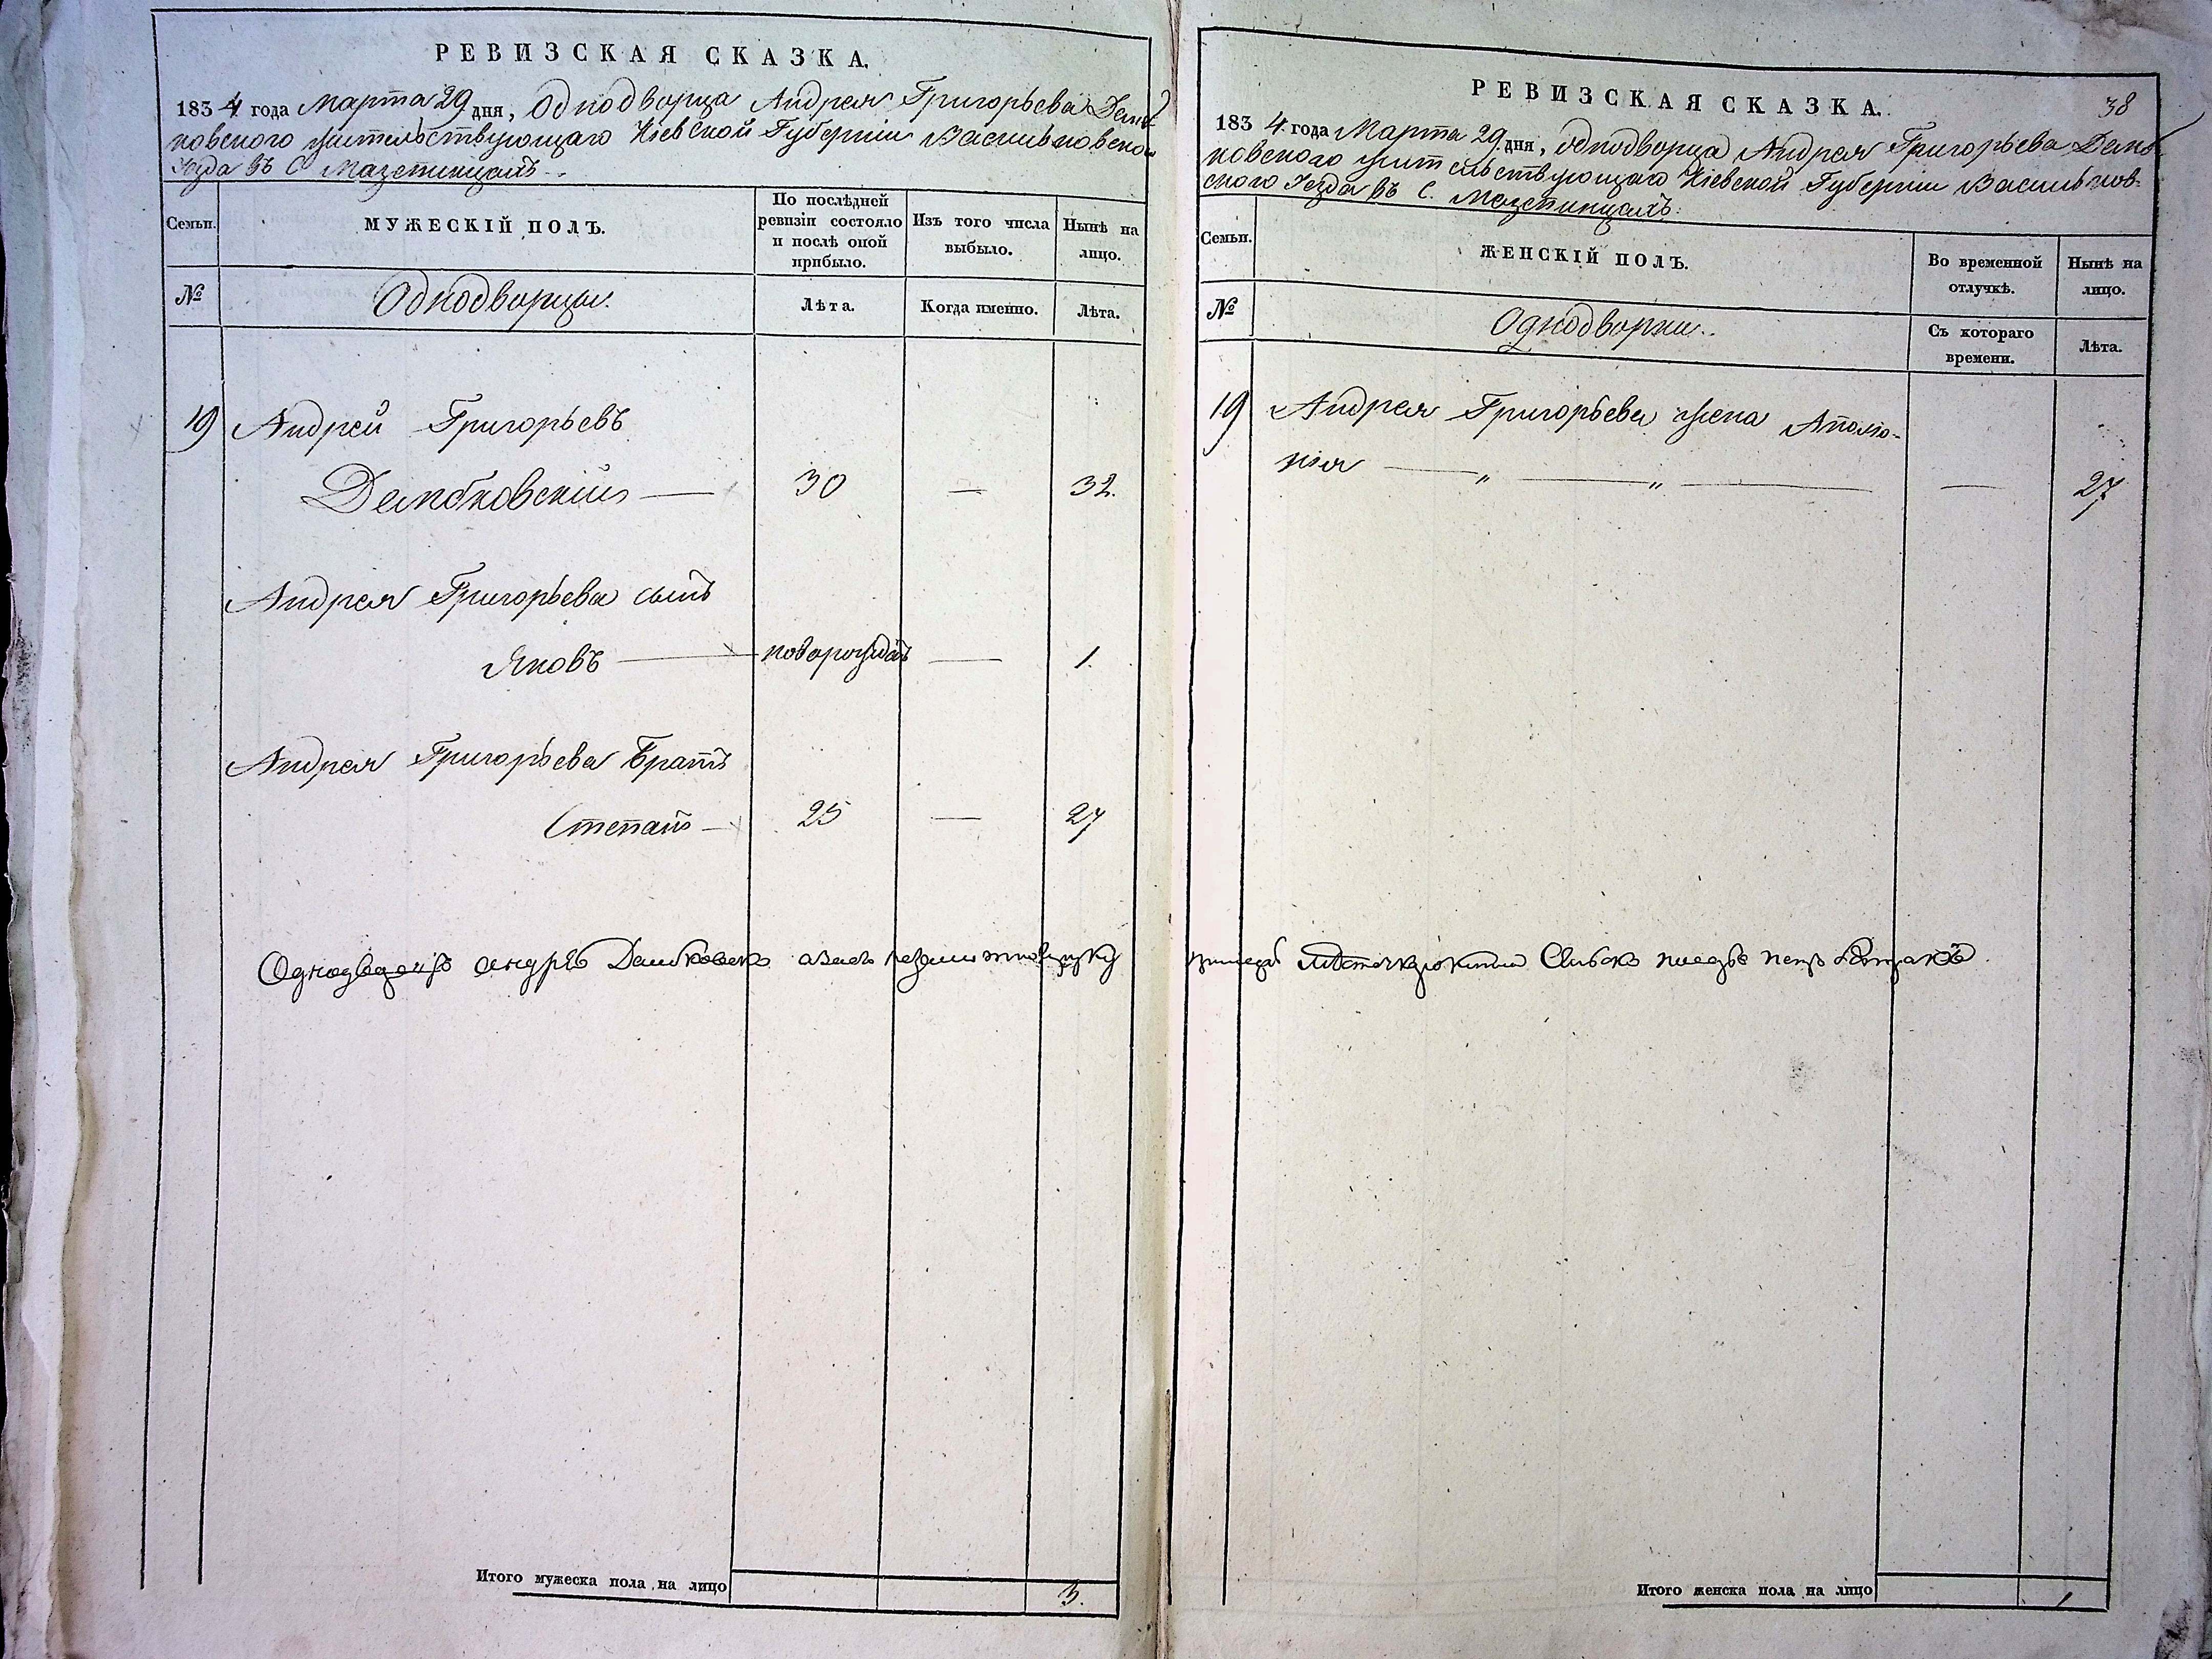 РЕВИЗСКАЯ СКАЗКА.
1834 года Марта 29 дня, Однодворца Андрея Григорьева Демб-
ковского жительствующаго Кіевской Губерніи Васильковско
Уезда въ С Мазепинцахъ
Семьи.
МУЖЕСКІЙ ПОЛЪ.
По послѣдней
ревизіи состояло
и послѣ оной
прибыло.
Изъ того числа
выбыло.
Нынѣ на
лицо.
№
Однодворцы.
Лѣта.
Когда именно.
Лѣта.
19 Андрей Григорьевъ
Дембковскій — 30 — 32.
Андрея Григорьева сынъ
Яковъ — новорожденъ — 1.
Андрея Григорьева братъ
Степанъ — 25 — 27
Андре
Итого мужеска пола на лицо 3.
РЕВИЗСКАЯ СКАЗКА.
38
1834 года Марта 29 дня, Однодворца Андрея Григорьева Демб-
ковского жительствующаго Кіевской Губерніи Васильков-
ского Уезда въ С. Мазепинцахъ.
Семьи.
ЖЕНСКІЙ ПОЛЪ.
Во временной
отлучкѣ.
Нынѣ на
лицо.
№
Однодворки.
Съ котораго
времени.
Лѣта.
19 Андрея Григорьева жена Аполо-
нія — " — " — — 27
Итого женска пола на лицо 1